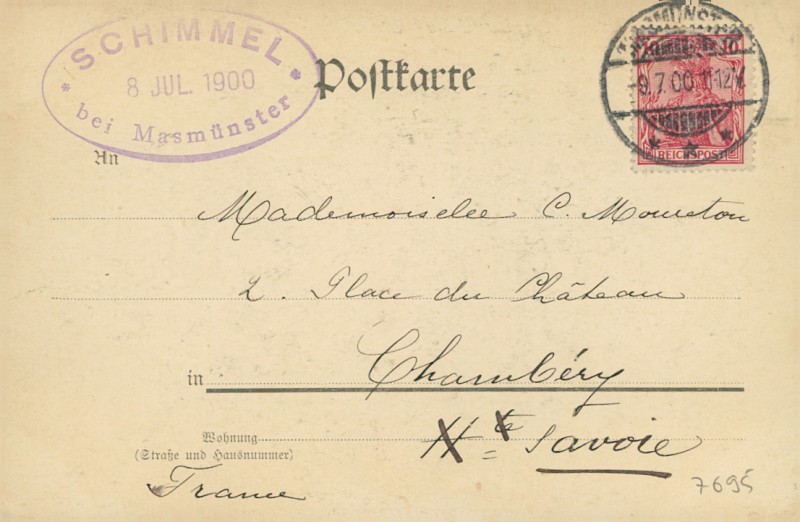 SCHIMMEL
8 JUL. 1900
bei Masmünster
Postkarte
MASMÜNSTER
9.7.00. 11-12V.
10 10
REICHSPOST
An
Mademoiselle C. Moureton
2. Place du Château
in Chambéry
Wohnung
(Straße und Hausnummer)
Hte Savoie
France
7695